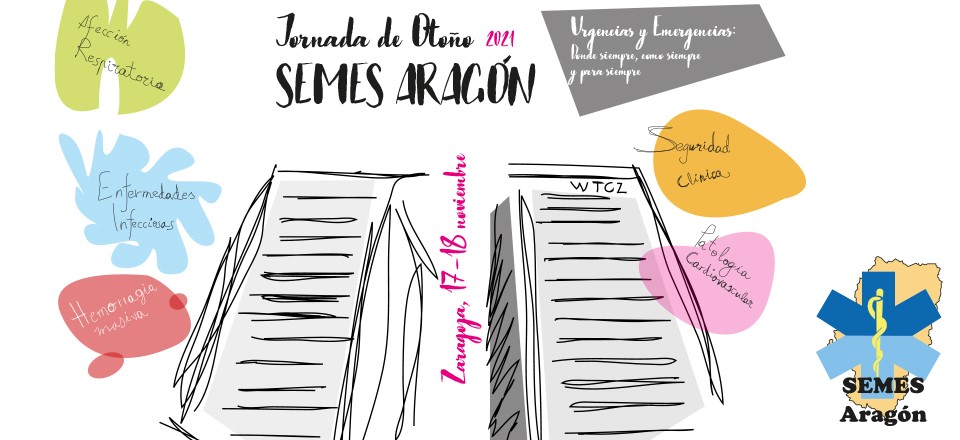 Afección
Respiratoria
Jornada de Otoño 2021
SEMES ARAGÓN
Urgencias y Emergencias:
Donde siempre, como siempre
y para siempre
Enfermedades
Infecciosas
Hemorragia
masiva
Zaragoza, 17-18 noviembre
WTCZ
Seguridad
clínica
Patología
Cardiovascular
SEMES
Aragón